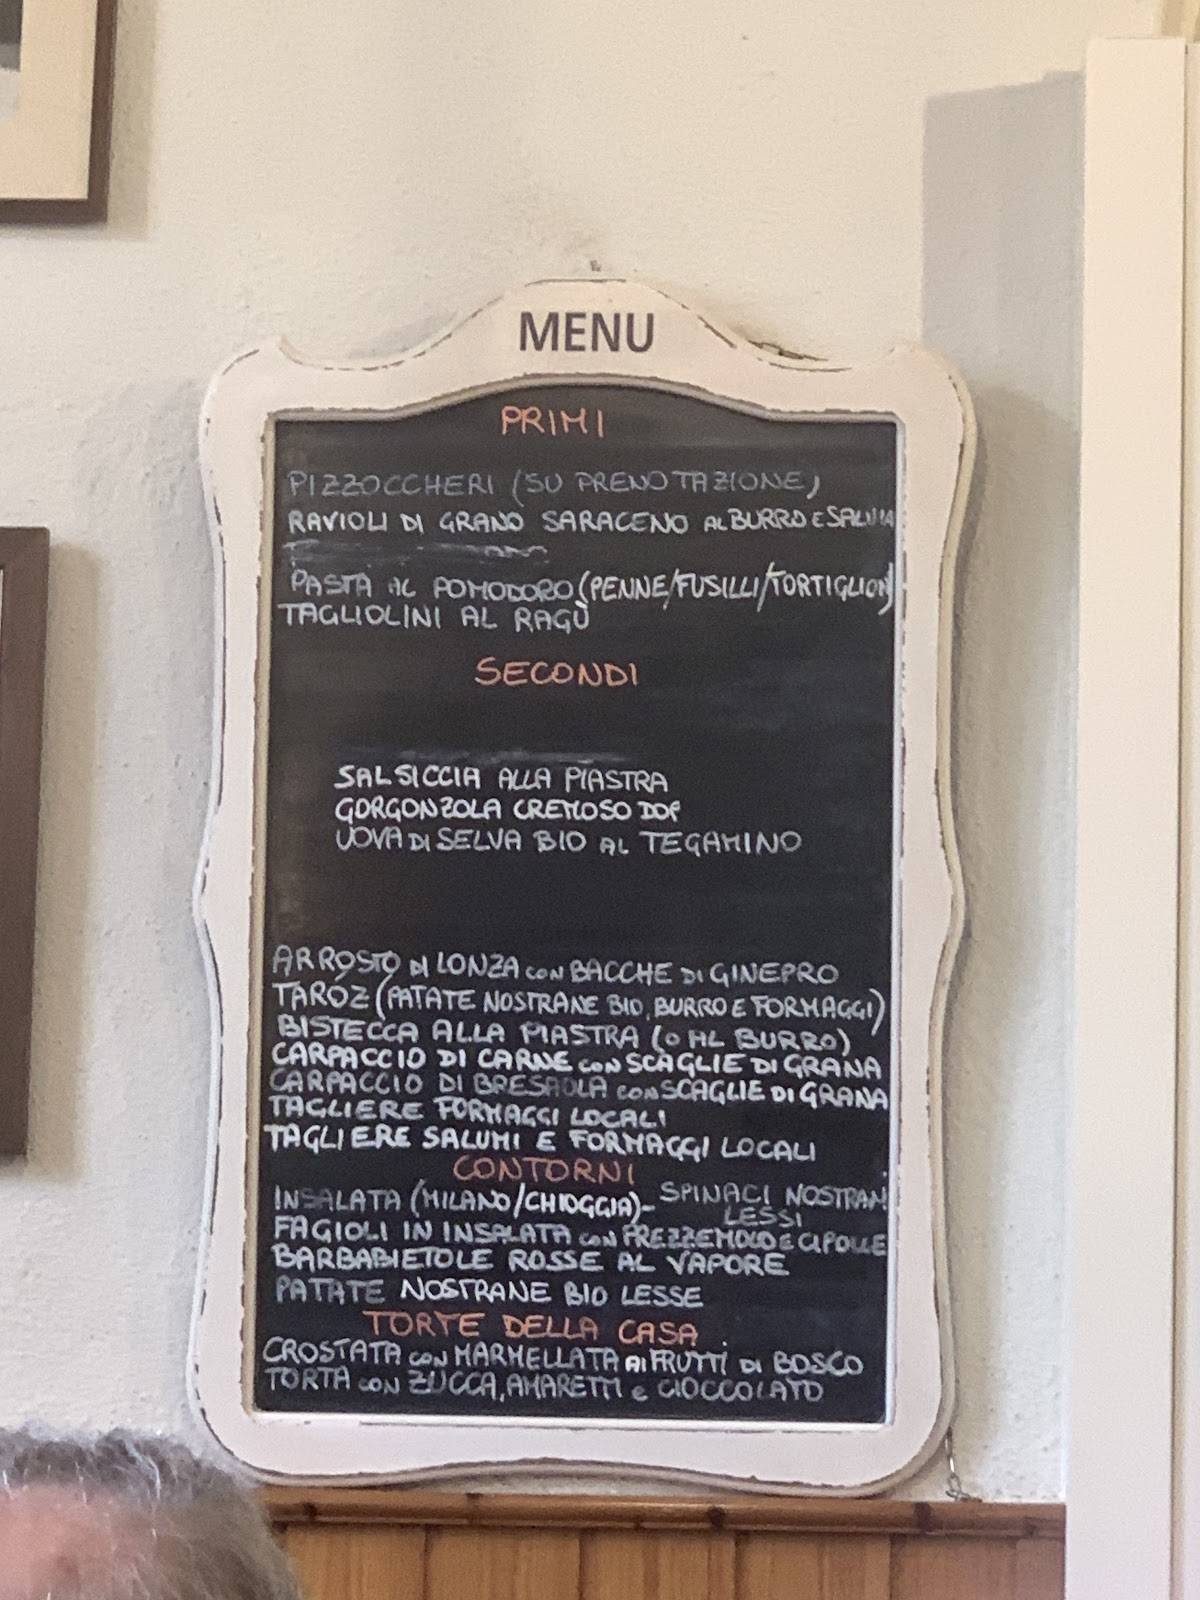 MENU
PRIMI
PIZZOCCHERI (SU PRENOTAZIONE)
RAVIOLI DI GRANO SARACENO AL BURRO E SALVIA
PASTA AL POMODORO (PENNE/FUSILLI/TORTIGLIONI)
TAGLIOLINI AL RAGÙ
SECONDI
SALSICCIA ALLA PIASTRA
GORGONZOLA CREMOSO DOP
UOVA DI SELVA BIO AL TEGAMINO
ARROSTO DI LONZA CON BACCHE DI GINEPRO
TAROZ (PATATE NOSTRANE BIO, BURRO E FORMAGGI)
BISTECCA ALLA PIASTRA (O AL BURRO)
CARPACCIO DI CARNE CON SCAGLIE DI GRANA
CARPACCIO DI BRESAOLA CON SCAGLIE DI GRANA
TAGLIERE FORMAGGI LOCALI
TAGLIERE SALUMI E FORMAGGI LOCALI
CONTORNI
INSALATA (MILANO/CHIOGGIA)- SPINACI NOSTRANI
LESSI
FAGIOLI IN INSALATA CON PREZZEMOLO E CIPOLLE
BARBABIETOLE ROSSE AL VAPORE
PATATE NOSTRANE BIO LESSE
TORTE DELLA CASA
CROSTATA CON MARMELLATA AI FRUTTI DI BOSCO
TORTA CON ZUCCA, AMARETTI E CIOCCOLATO